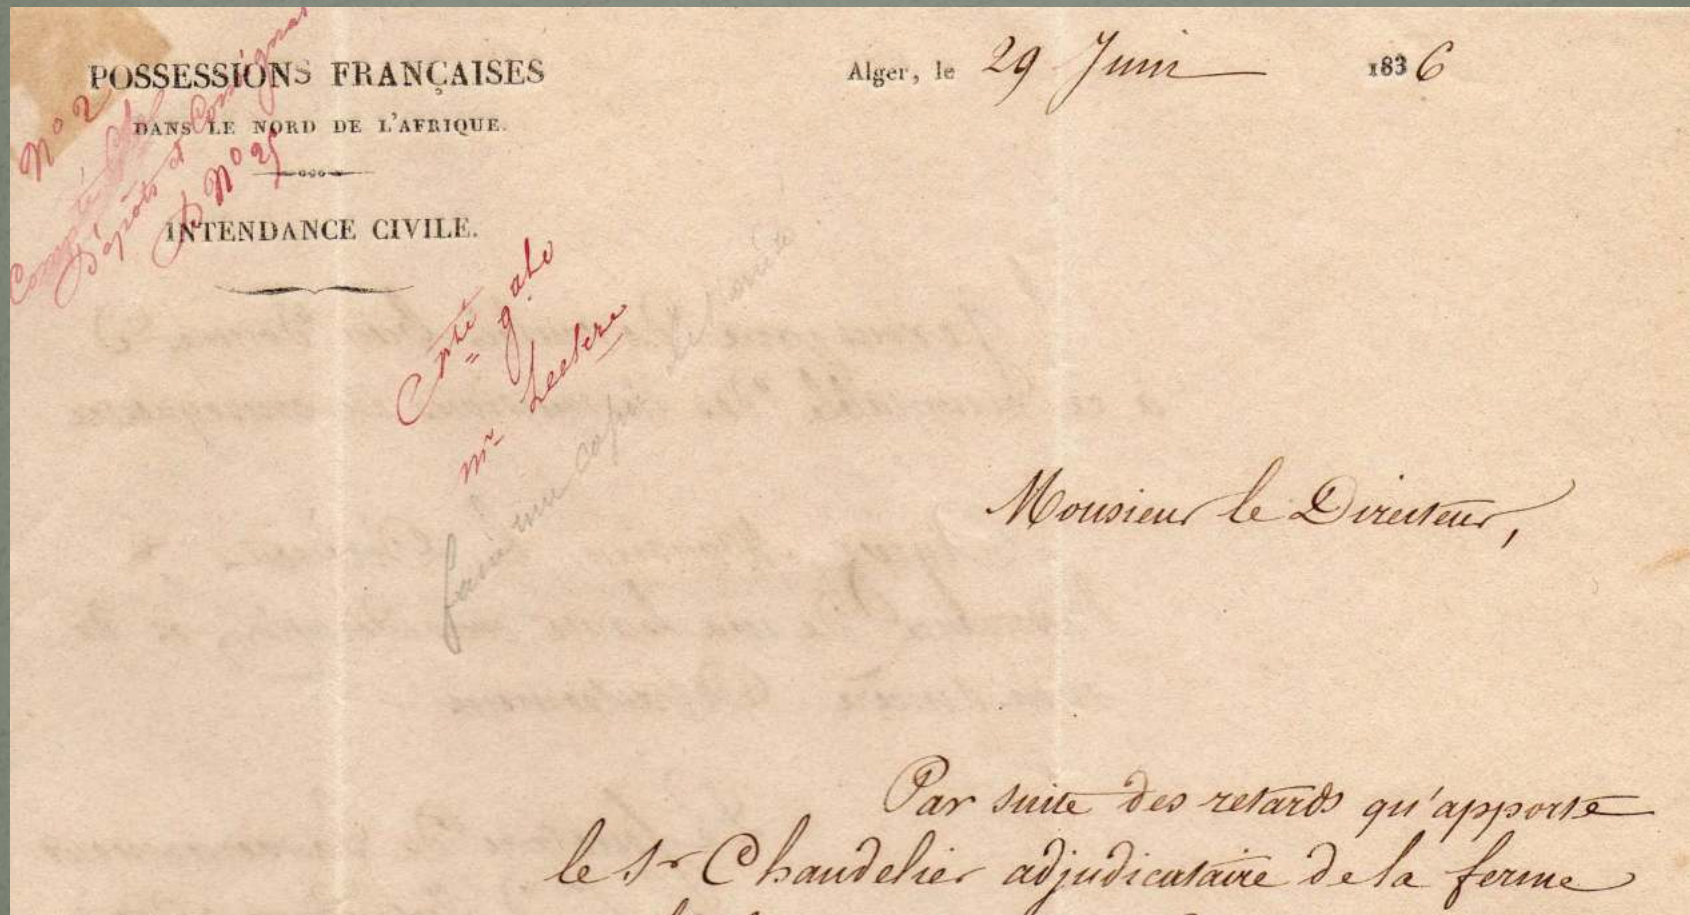 POSSESSIONS FRANÇAISES
DANS LE NORD DE L'AFRIQUE.
INTENDANCE CIVILE.
Alger, le 29 Juin 1836
N° 2
Dépôts et
N° 25
Mr Leclerc
faire une copie
Monsieur le Directeur,
Par suite des retards qu'apporte
le Sr Chandelier adjudicataire de la ferme